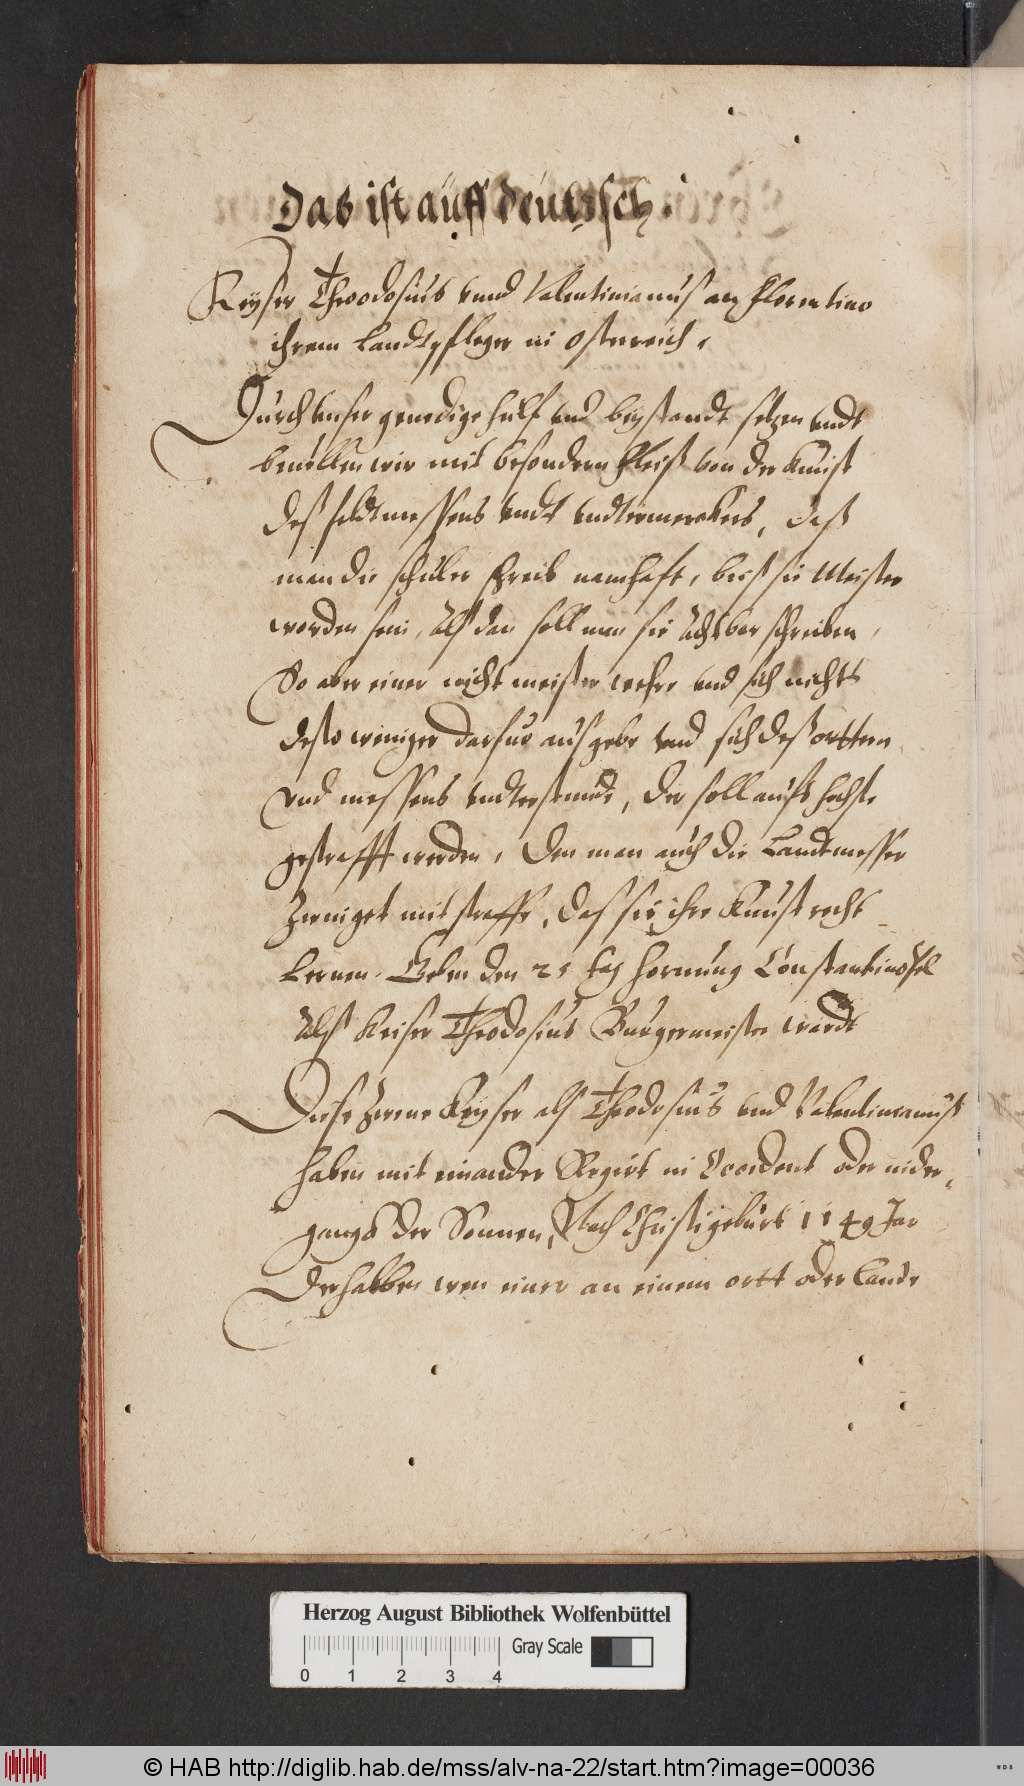 Das ist auff deutzsch.
Keyser Theodosius vnnd Valentinianus an Florentino
ihrem Landtpfleger in Osterreich,
Durch vnser genedige hulf vnd beystandt setzen vndt
beuellen wir mit besondern fleiß von der Kunst
deß feldtmessens vndt, daß
man die schuler schreib namhaft, biß sie Meister
worden sein, Alß dan soll man sie Achtbar schreiben,
So aber einer nicht meister wehre vnd sich nichts
desto weniger darfur aus gebe vnd sich deß orttern
vnd messens vndterstunde, der soll aufs hochste
gestrafft werden, den man auch die Landtmesser
mit straffe, das sie ihre Kunst recht
Lernen. Geben den 25 tag hornung Constantinopel
Alß Keiser Theodosius Burgermeister wardt
Diese zwene Keyser als Theodosius vnd Valentinianus
haben mit einander Regirt in Occident oder nider,
gangs der Sonnen, Nach Christi geburt 1149 Jar
Derhalben wen einer an einem ortt oder Lande
Herzog August Bibliothek Wolfenbüttel
Gray Scale
0 1 2 3 4
© HAB http://diglib.hab.de/mss/alv-na-22/start.htm?image=00036